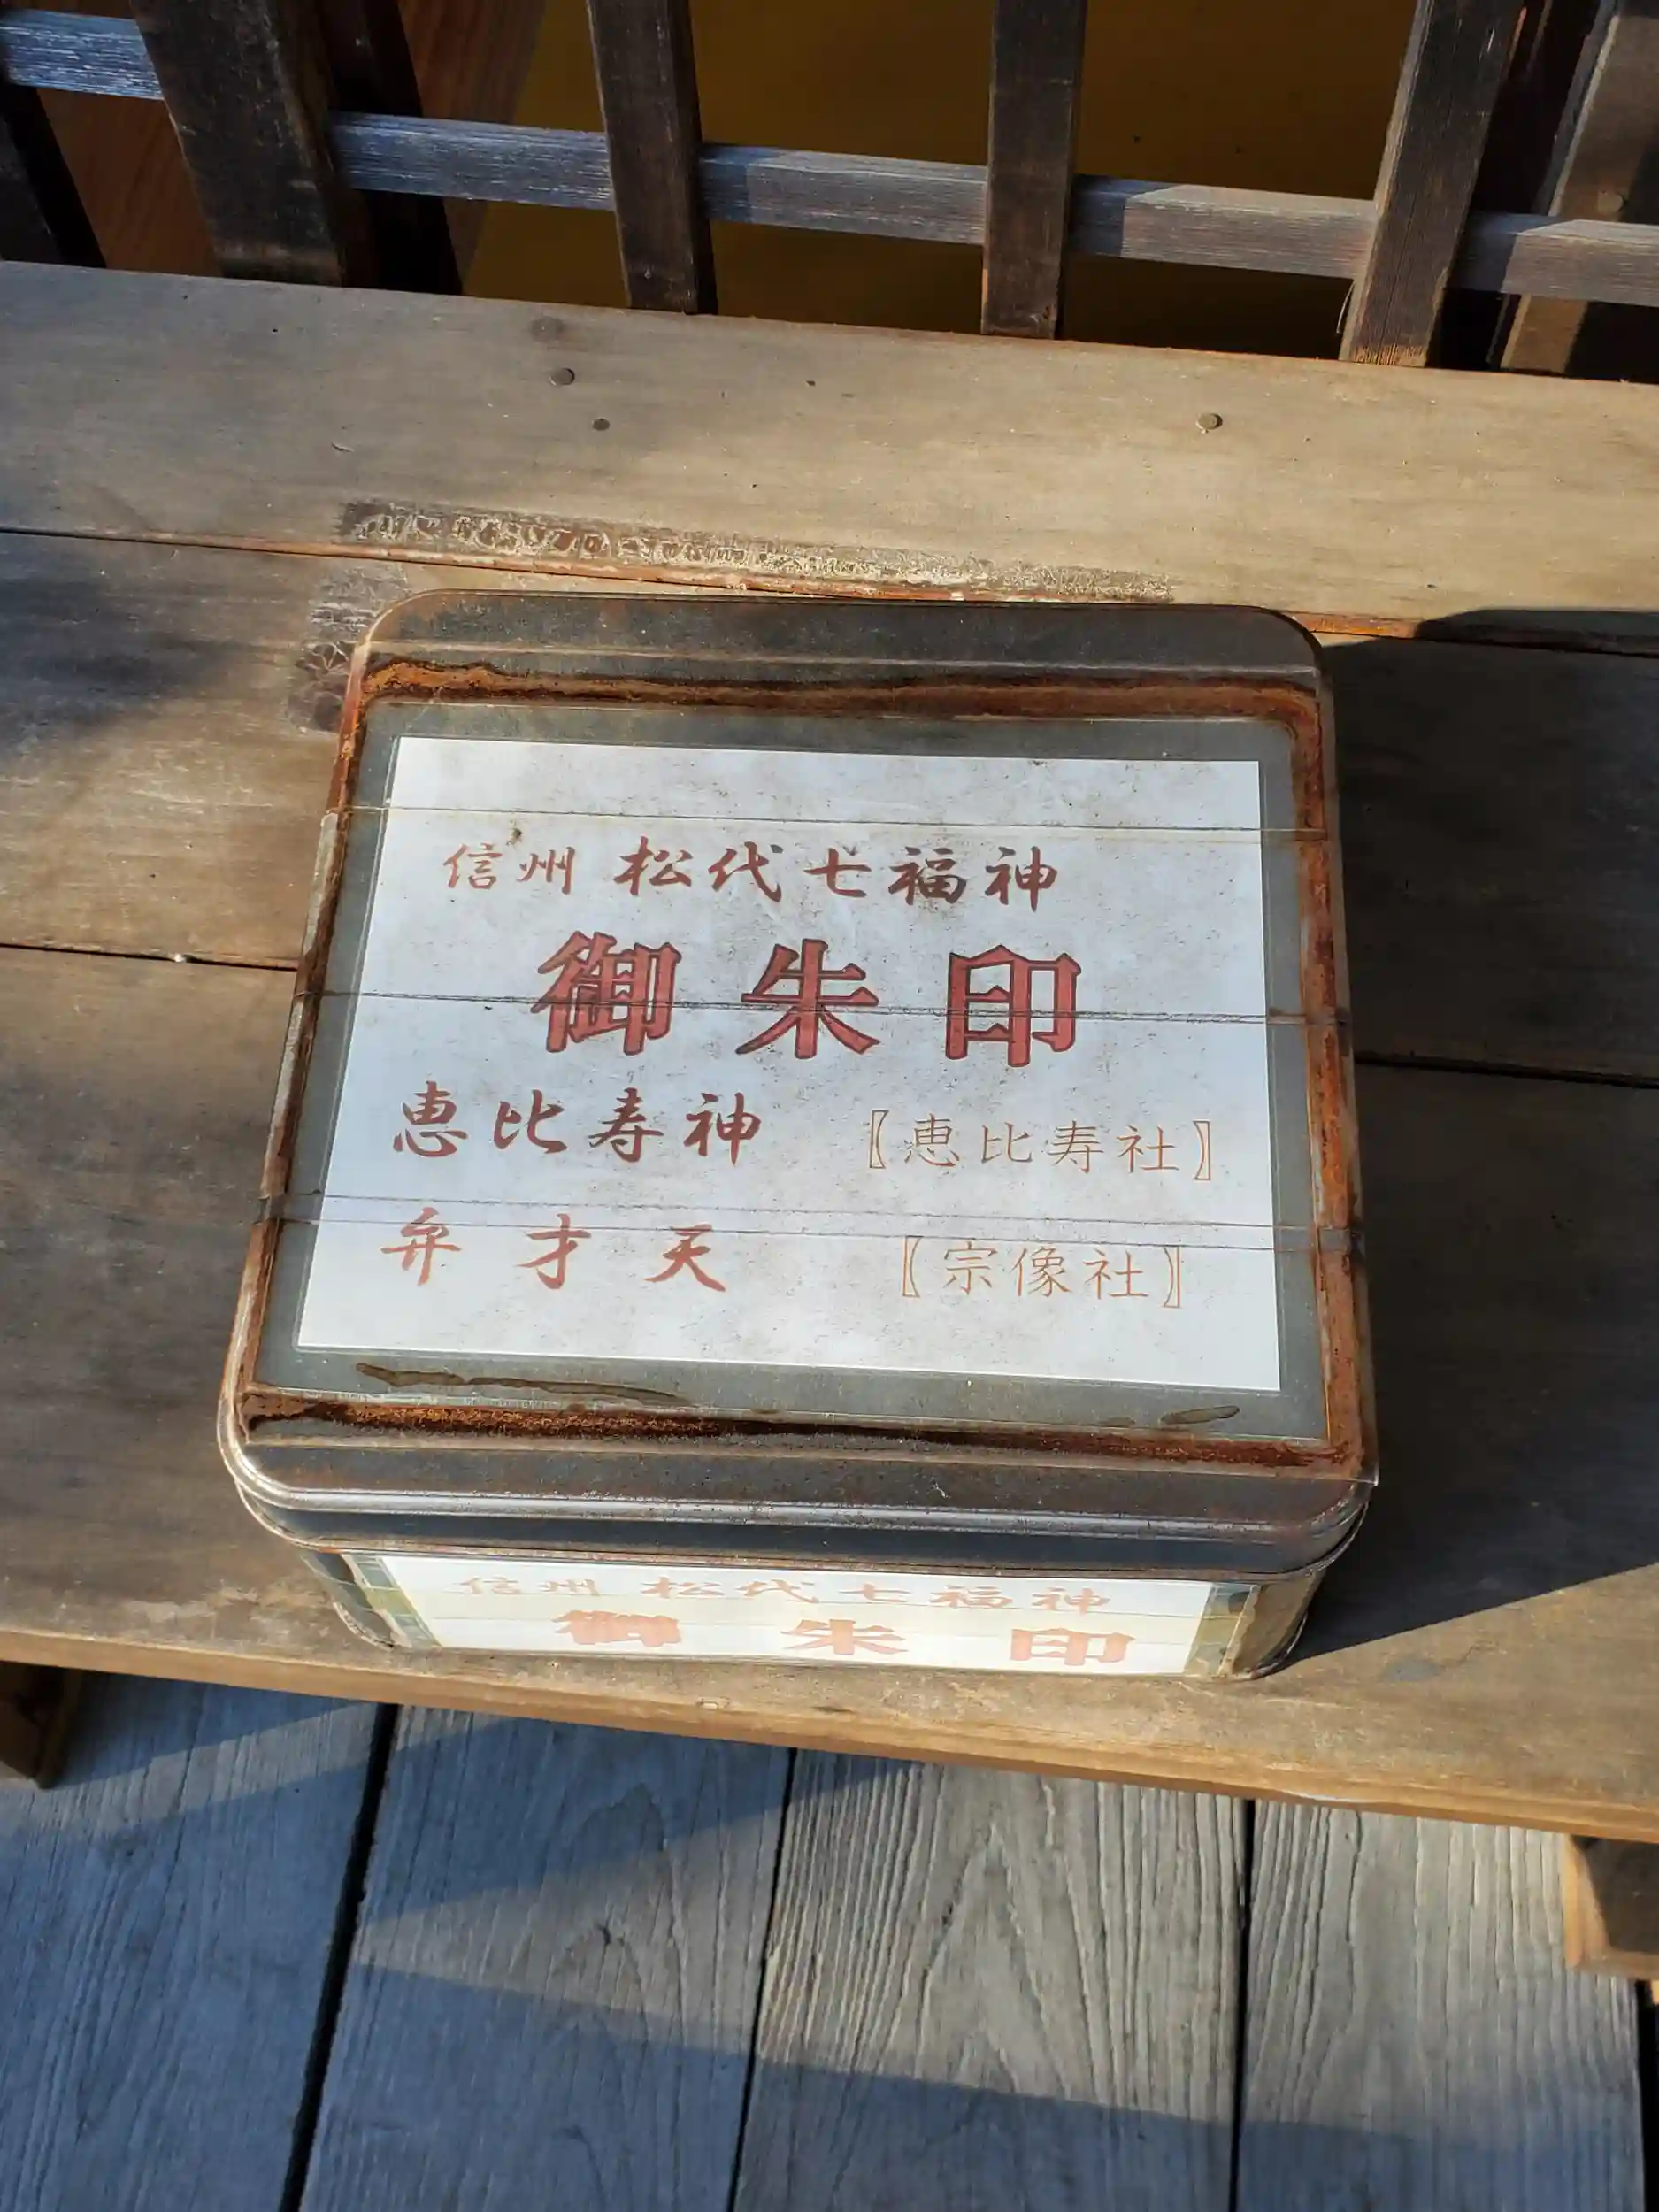 信州 松代七福神
御朱印
恵比寿神 〖恵比寿社〗
弁才天 〖宗像社〗
信州 松代七福神
御朱印